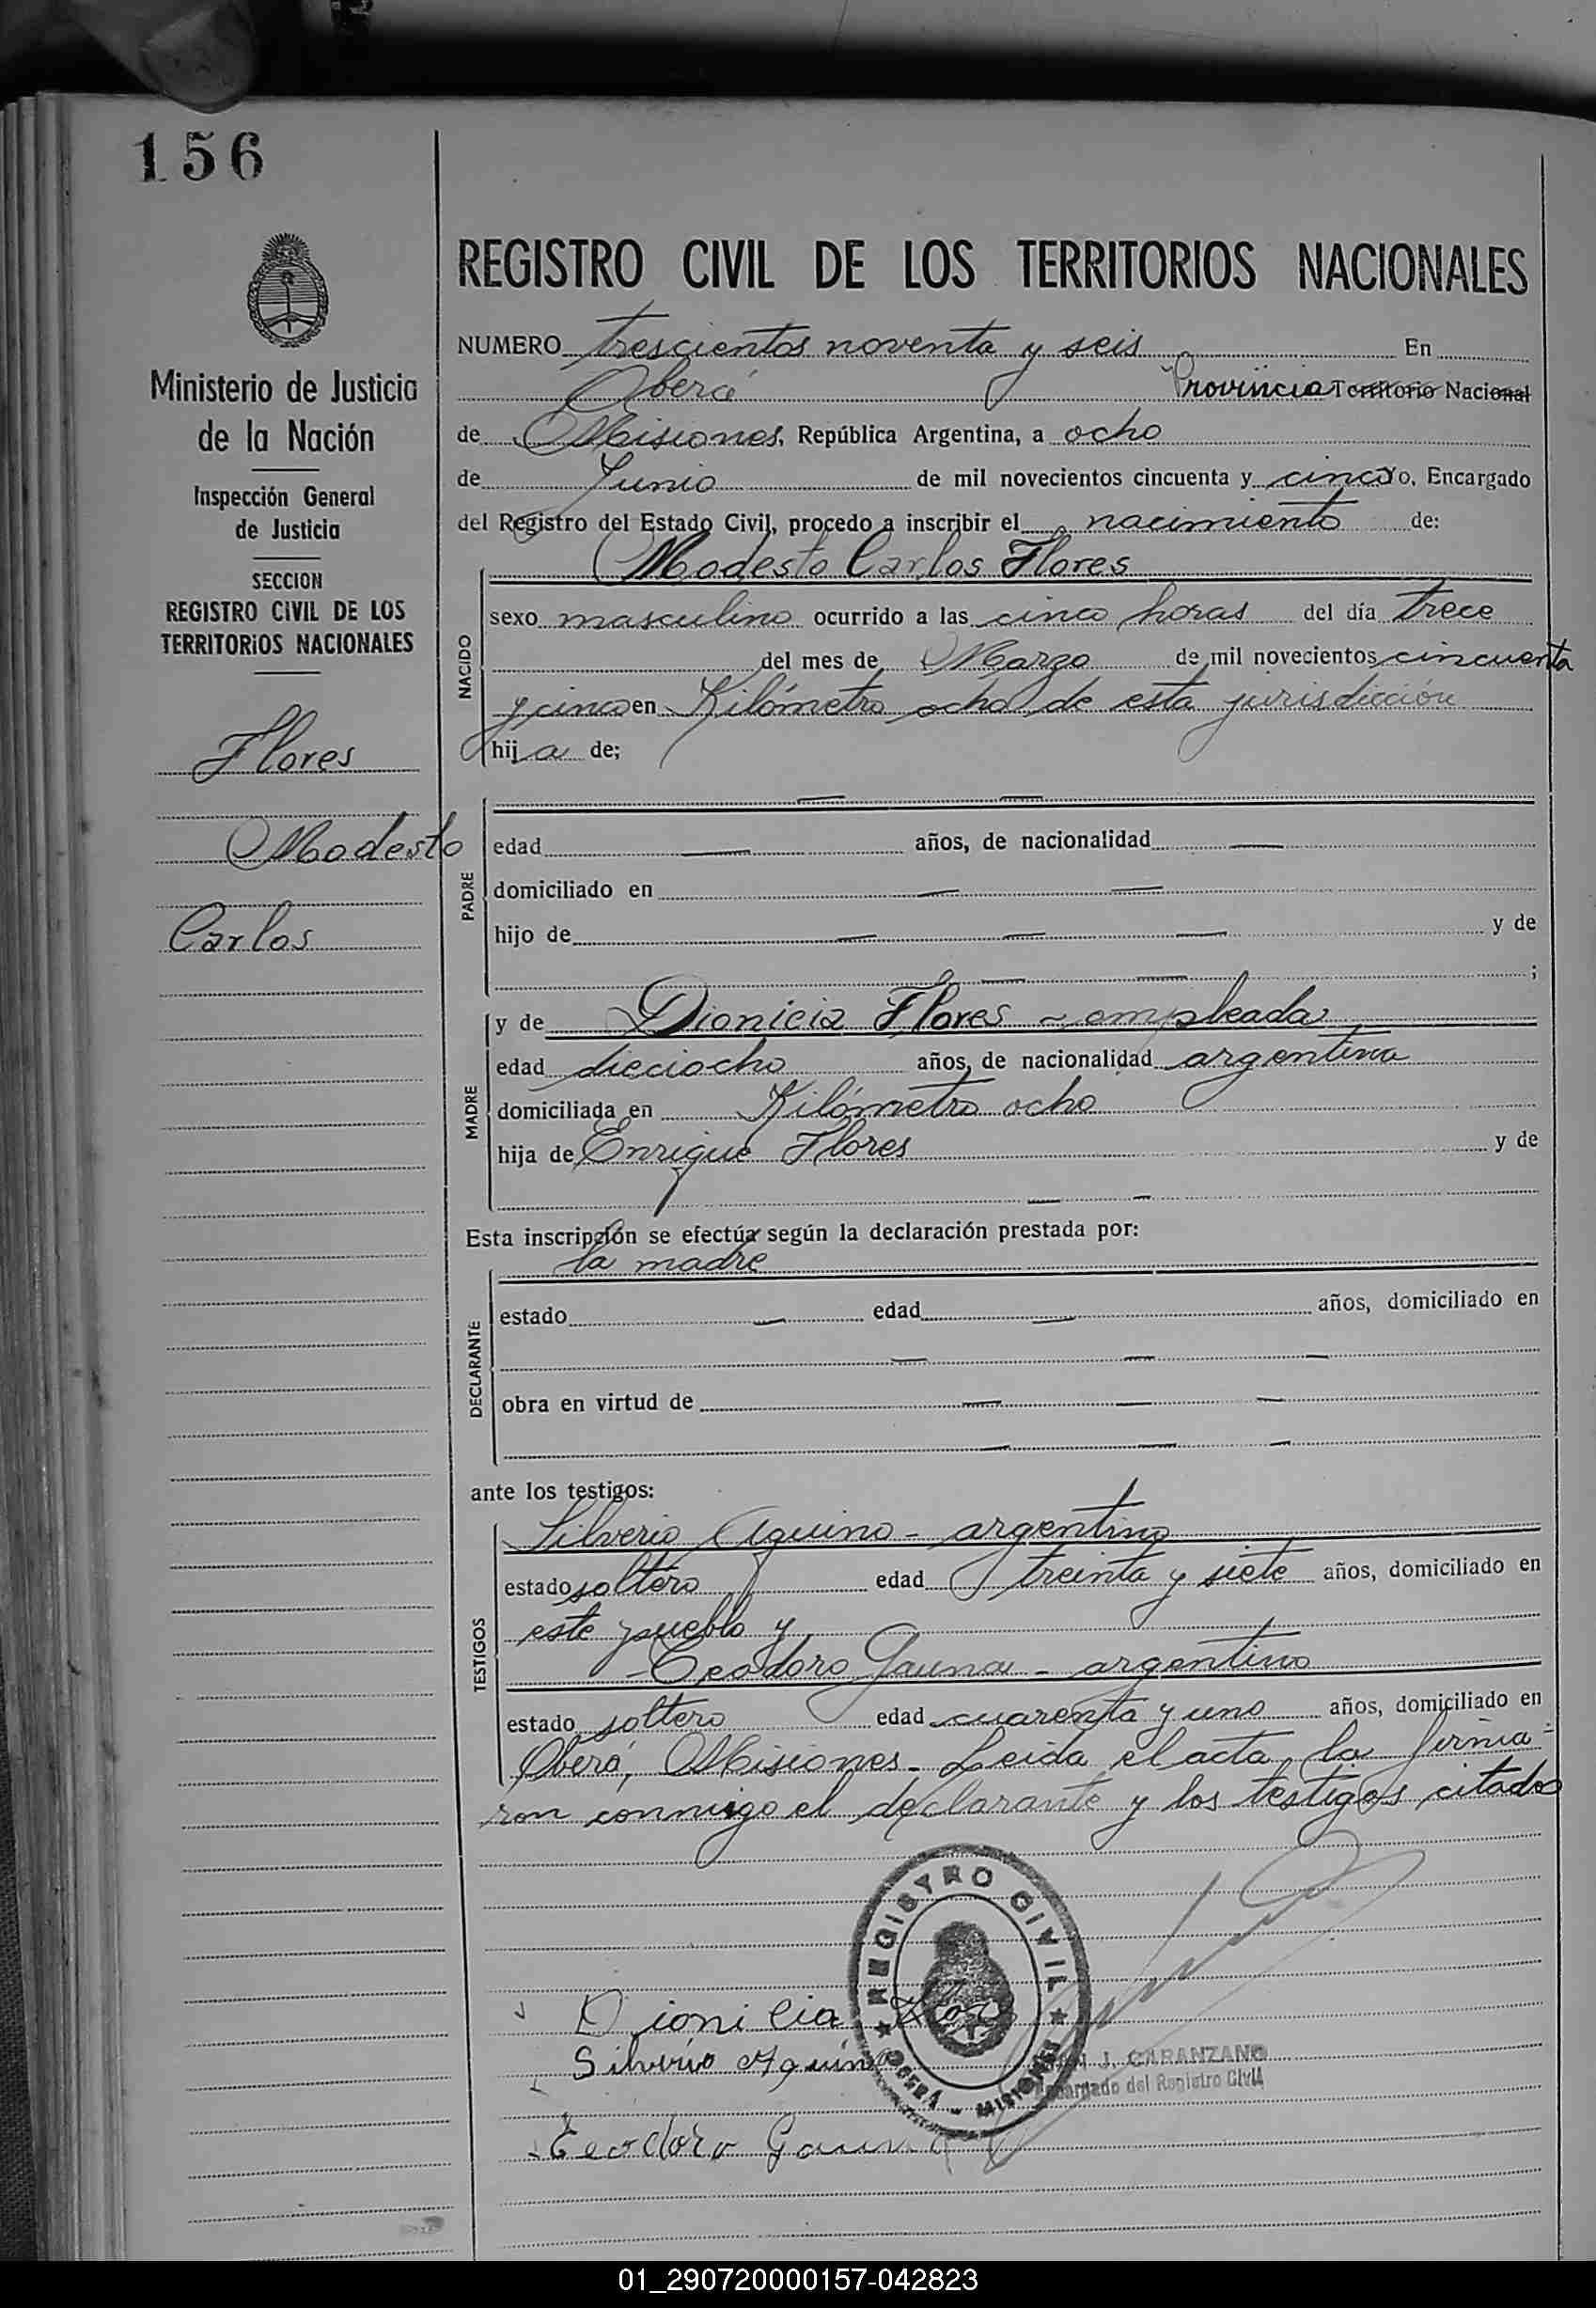 156
Ministerio de Justicia
de la Nación
Inspección General
de Justicia
SECCION
REGISTRO CIVIL DE LOS
TERRITORIOS NACIONALES
Flores
Modesto
Carlos
REGISTRO CIVIL DE LOS TERRITORIOS NACIONALES
NUMERO trescientos noventa y seis En
Oberá Provincia Territorio Nacional
de Misiones, República Argentina, a ocho
de Junio de mil novecientos cincuenta y cinco, Encargado
del Registro del Estado Civil, procedo a inscribir el nacimiento de:
NACIDO
Modesto Carlos Flores
sexo masculino ocurrido a las cinco horas del día trece
del mes de Marzo de mil novecientos cincuenta
y cinco en Kilómetro ocho de esta jurisdicción
hija de;
PADRE
edad años, de nacionalidad
domiciliado en
hijo de y de
;
MADRE
y de Dionicia Flores - empleada
edad dieciocho años, de nacionalidad argentina
domiciliada en Kilómetro ocho
hija de Enrique Flores y de
Esta inscripción se efectúa según la declaración prestada por:
DECLARANTE
la madre
estado edad años, domiciliado en
obra en virtud de
ante los testigos:
TESTIGOS
Silverio Aquino - argentino
estado soltero edad treinta y siete años, domiciliado en
este pueblo y
- Teodoro Gauna - argentino
estado soltero edad cuarenta y uno años, domiciliado en
Oberá, Misiones - Leida el acta, la firma-
ron conmigo el declarante y los testigos citados
REGISTRO CIVIL
OBERA - MISIONES
Dionicia Flores
Silverio Aquino
J. GARANZANO
Encargado del Registro Civil
Teodoro Gauna
01_290720000157-042823